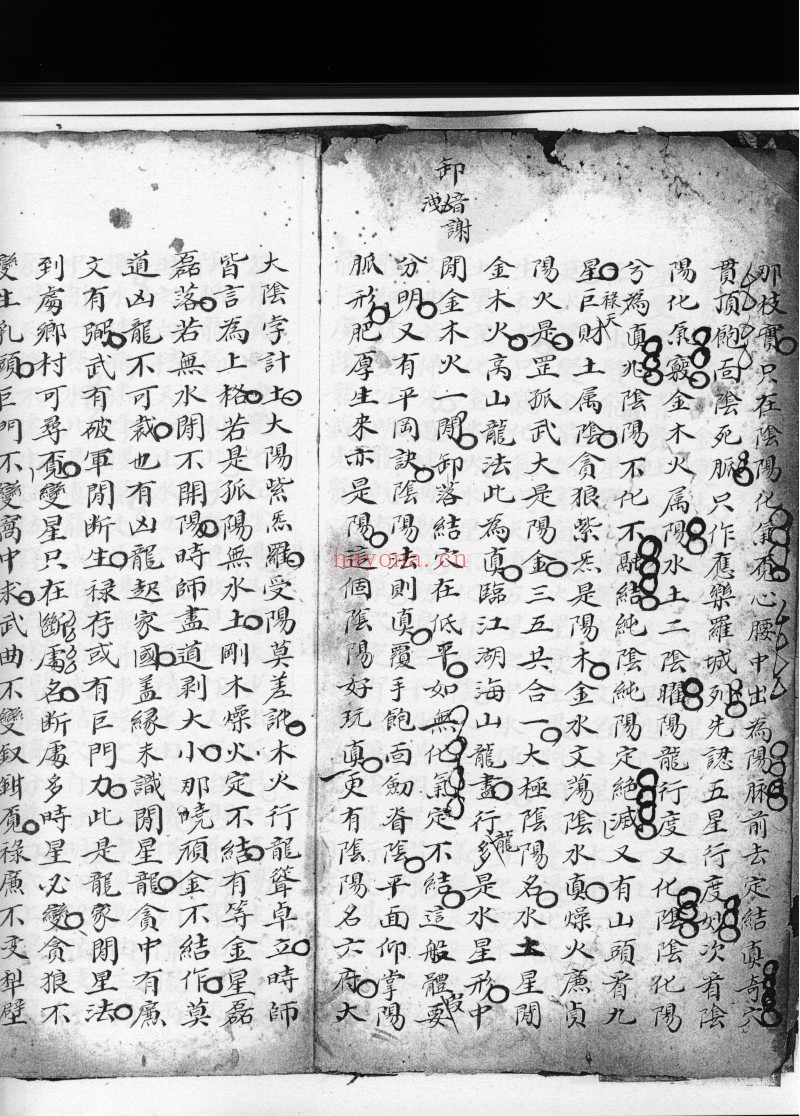 卸音謝
洩
那枝實只在陰陽化氣覓心腰中出為陽脉前去定結真奇穴
貫頂飽面陰死脈只作應樂羅城列先認五星行度妙次看陰
陽化氣竅金木火属陽水土二陰曜陽龍行度又化陰陰化陽
兮為真兆陰陽不化不融結純陰純陽定絶滅又有山頭看九
星巨財土属陰貪狼紫炁是陽木金水文蕩陰水真燥火廉貞
祿天
陽火是罡孤武大是陽金三五共合一大極陰陽名水土星閒
金木火高山龍法此為真臨江湖海山龍盡行龍多是水星形中
閒金木火一閒卸落結穴在低平如無化氣定不結這般體要
分明又有平岡訣陰陽法則真覆手飽面劒脊陰平面仰掌陽
脈形肥厚生來亦是陽這個陰陽好玩真更有陰陽名六府大
大陰孛計土大陽紫炁羅受陽莫差訛木火行龍聳卓立時師
皆言為上格若是孤陽無水土剛木燥火定不結有等金星磊
磊落若無水閒不開陽時師盡道剥大小那曉頑金不結作莫
道凶龍不可裁也有凶龍起家國盖緣未識閒星龍貪中有廉
文有弼武有破軍閒斷生禄存或有巨門力此是龍家閒星法
到處鄉村可尋覓變星只在斷處名斷處多時星必變貪狼不
變生乳頭巨門不變窩中求武曲不變釵鉗覓禄廉不变犁壁
nayona.cn